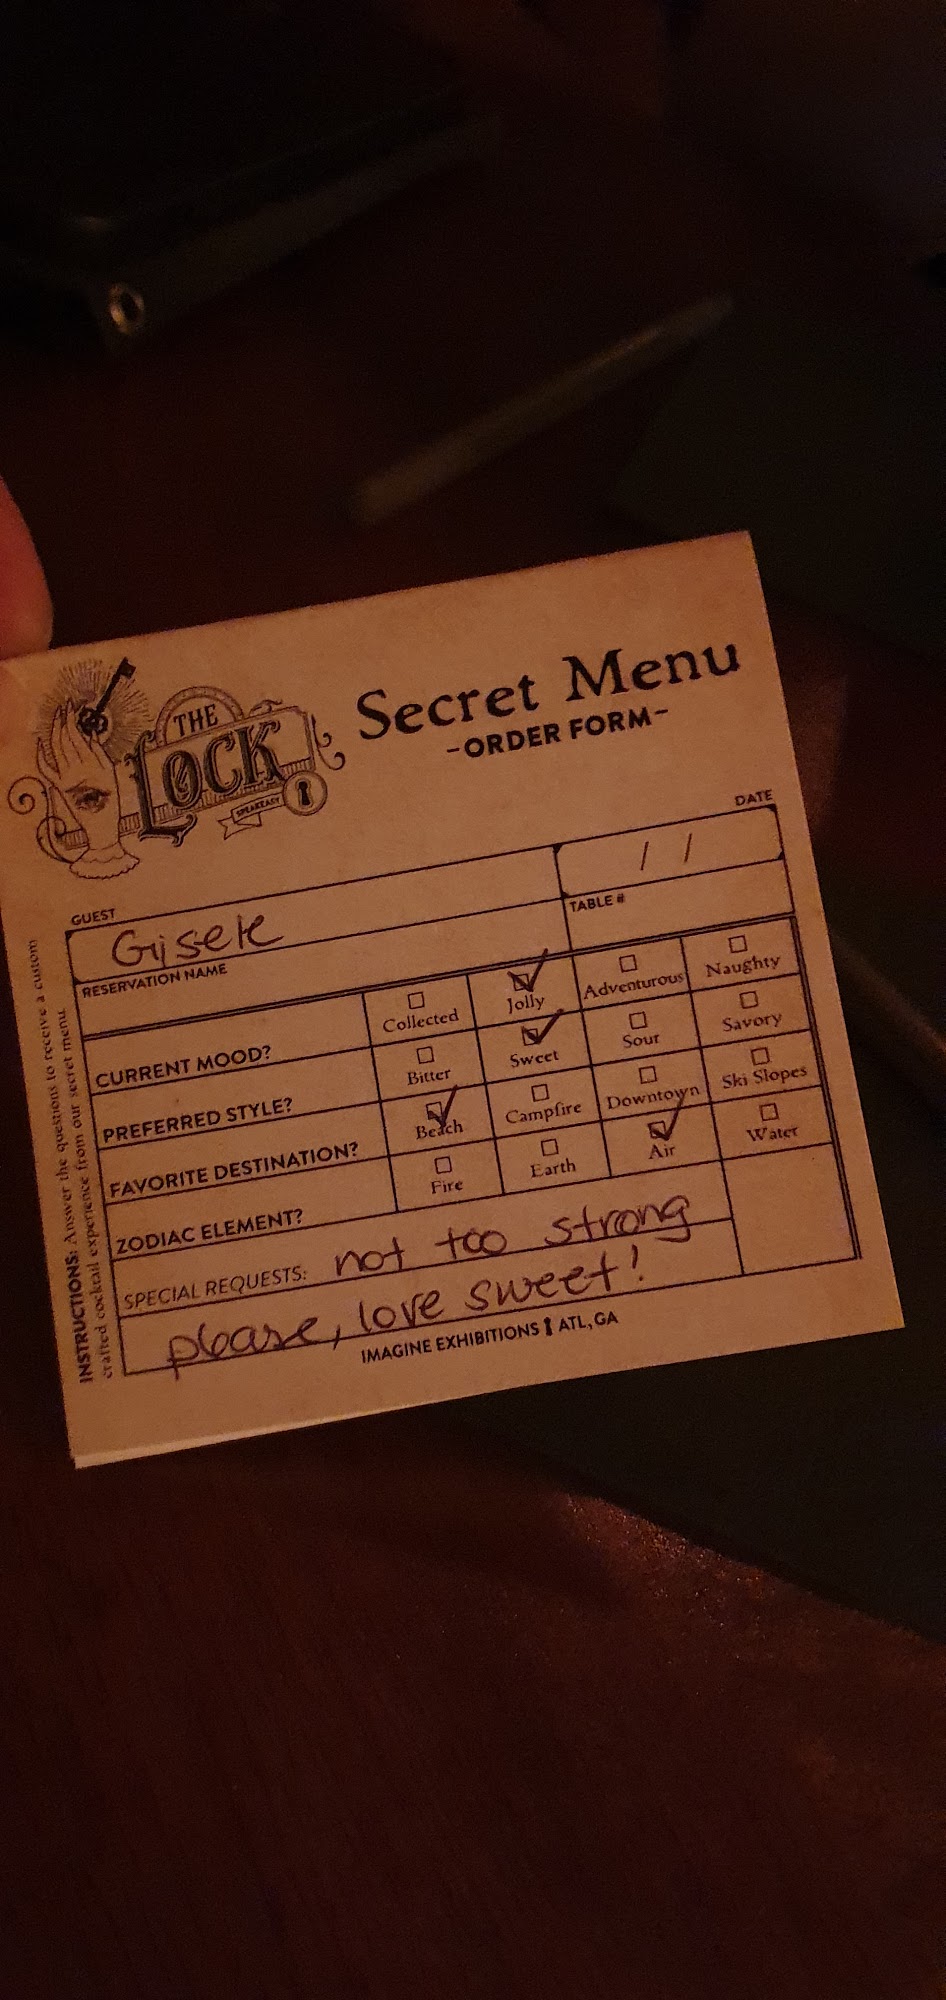 THE
LOCK
SPEAKEASY
Secret Menu
-ORDER FORM-
DATE
/ /
GUEST
Gisele
TABLE #
RESERVATION NAME
CURRENT MOOD? Collected Jolly Adventurous Naughty
PREFERRED STYLE? Bitter Sweet Sour Savory
FAVORITE DESTINATION? Beach Campfire Downtown Ski Slopes
ZODIAC ELEMENT? Fire Earth Air Water
SPECIAL REQUESTS: not too strong
please, love sweet!
IMAGINE EXHIBITIONS ATL, GA
INSTRUCTIONS: Answer the questions to receive a custom
crafted cocktail experience from our secret menu.